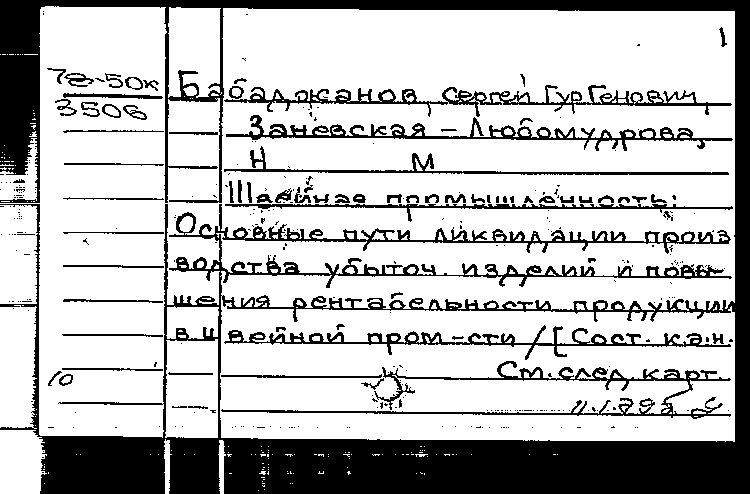 1
78-50к
3506
Бабаджанов, Сергей ГурГенович,
Заневская - Любомудрова,
Н М
Швейная промышленность:
Основные пути ликвидации произ
водства убыточ. изделий и повы-
шения рентабельности продукции
в швейной пром-сти /[Сост. к.э.н.
См. след. карт.
10